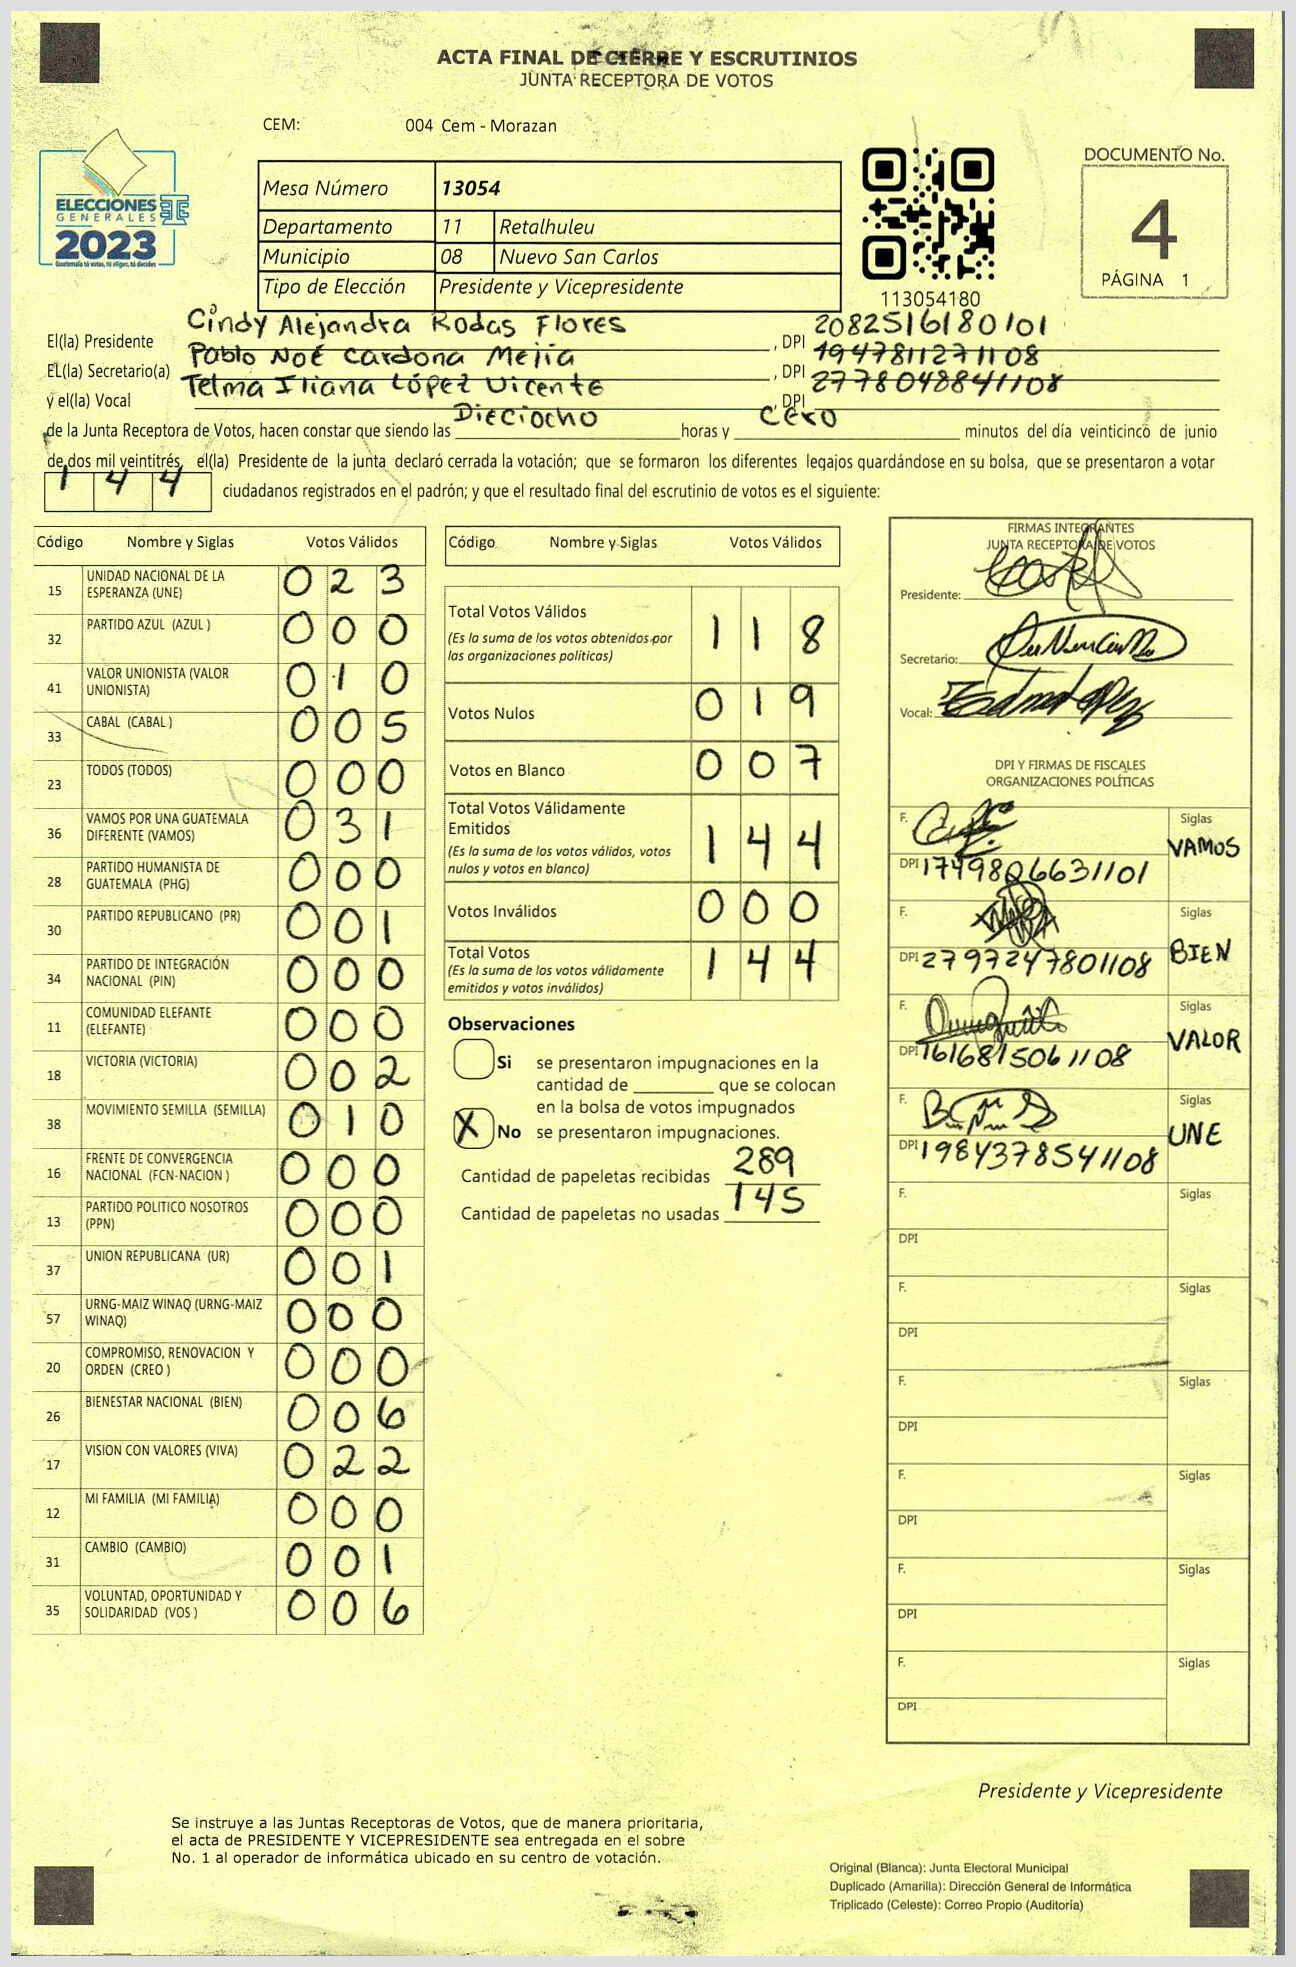 ACTA FINAL DE CIERRE Y ESCRUTINIOS
JUNTA RECEPTORA DE VOTOS
CEM: 004 Cem - Morazan
ELECCIONES
GENERALES
2023
Guatemala tú votas, tú eliges, tú decides
Mesa Número 13054
Departamento 11 Retalhuleu
Municipio 08 Nuevo San Carlos
Tipo de Elección Presidente y Vicepresidente
113054180
DOCUMENTO No.
4
PÁGINA 1
El(la) Presidente Cindy Alejandra Rodas Flores, DPI 2082516180101
EL(la) Secretario(a) Pablo Noé Cardona Mejía, DPI 1947811271108
y el(la) Vocal Telma Iliana López Vicente, DPI 2778048841108
de la Junta Receptora de Votos, hacen constar que siendo las Dieciocho horas y Cero minutos del día veinticinco de junio
de dos mil veintitrés, el(la) Presidente de la junta declaró cerrada la votación; que se formaron los diferentes legajos guardándose en su bolsa, que se presentaron a votar
144 ciudadanos registrados en el padrón; y que el resultado final del escrutinio de votos es el siguiente:
Código Nombre y Siglas Votos Válidos
15 UNIDAD NACIONAL DE LA ESPERANZA (UNE) 023
32 PARTIDO AZUL (AZUL ) 000
41 VALOR UNIONISTA (VALOR UNIONISTA) 010
33 CABAL (CABAL ) 005
23 TODOS (TODOS) 000
36 VAMOS POR UNA GUATEMALA DIFERENTE (VAMOS) 031
28 PARTIDO HUMANISTA DE GUATEMALA (PHG) 000
30 PARTIDO REPUBLICANO (PR) 001
34 PARTIDO DE INTEGRACIÓN NACIONAL (PIN) 000
11 COMUNIDAD ELEFANTE (ELEFANTE) 000
18 VICTORIA (VICTORIA) 002
38 MOVIMIENTO SEMILLA (SEMILLA) 010
16 FRENTE DE CONVERGENCIA NACIONAL (FCN-NACION ) 000
13 PARTIDO POLITICO NOSOTROS (PPN) 000
37 UNION REPUBLICANA (UR) 001
57 URNG-MAIZ WINAQ (URNG-MAIZ WINAQ) 000
20 COMPROMISO, RENOVACION Y ORDEN (CREO ) 000
26 BIENESTAR NACIONAL (BIEN) 006
17 VISION CON VALORES (VIVA) 022
12 MI FAMILIA (MI FAMILIA) 000
31 CAMBIO (CAMBIO) 001
35 VOLUNTAD, OPORTUNIDAD Y SOLIDARIDAD (VOS ) 006
Código Nombre y Siglas Votos Válidos
Total Votos Válidos 118
(Es la suma de los votos obtenidos por
las organizaciones políticas)
Votos Nulos 019
Votos en Blanco 007
Total Votos Válidamente
Emitidos 144
(Es la suma de los votos válidos, votos
nulos y votos en blanco)
Votos Inválidos 000
Total Votos 144
(Es la suma de los votos válidamente
emitidos y votos inválidos)
Observaciones
Si se presentaron impugnaciones en la
cantidad de ________ que se colocan
en la bolsa de votos impugnados
X No se presentaron impugnaciones.
Cantidad de papeletas recibidas 289
Cantidad de papeletas no usadas 145
FIRMAS INTEGRANTES
JUNTA RECEPTORA DE VOTOS
Presidente:
Secretario:
Vocal:
DPI Y FIRMAS DE FISCALES
ORGANIZACIONES POLÍTICAS
F. Siglas VAMOS
DPI 1749806631101
F. Siglas BIEN
DPI 2797247801108
F. Siglas VALOR
DPI 1616815061108
F. Siglas UNE
DPI 1984378541108
F. Siglas
DPI
F. Siglas
DPI
F. Siglas
DPI
F. Siglas
DPI
F. Siglas
DPI
F. Siglas
DPI
Presidente y Vicepresidente
Se instruye a las Juntas Receptoras de Votos, que de manera prioritaria,
el acta de PRESIDENTE Y VICEPRESIDENTE sea entregada en el sobre
No. 1 al operador de informática ubicado en su centro de votación.
Original (Blanca): Junta Electoral Municipal
Duplicado (Amarilla): Dirección General de Informática
Triplicado (Celeste): Correo Propio (Auditoría)